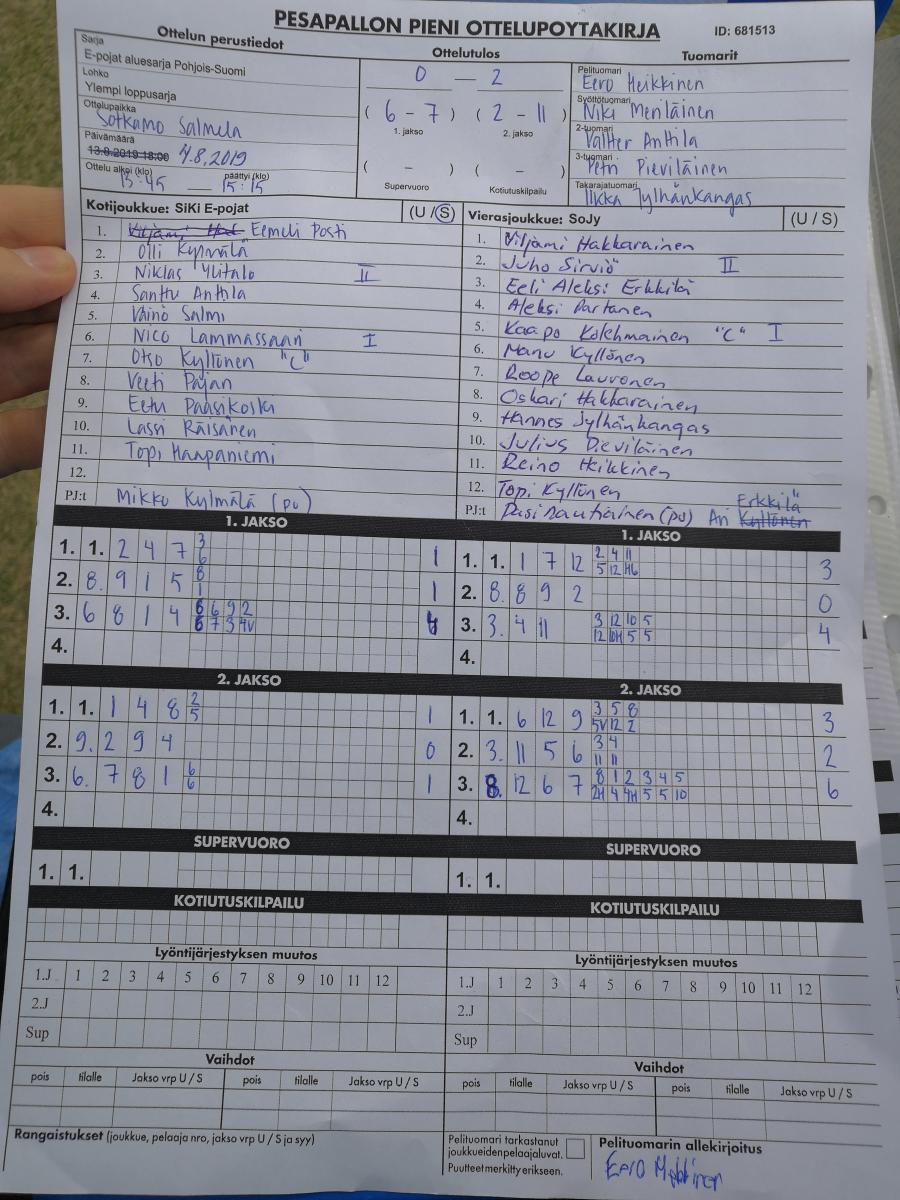 PESAPALLON PIENI OTTELUPOYTAKIRJA
ID: 681513
Ottelun perustiedot
Sarja
E-pojat aluesarja Pohjois-Suomi
Lohko
Ylempi loppusarja
Ottelupaikka
Sotkamo Salmela
Päivämäärä
13.8.2019 18:00 4.8.2019
Ottelu alkoi (klo) päättyi (klo)
13:45 — 15:15
Ottelutulos
0 — 2
( 6 - 7 ) ( 2 - 11 )
1. jakso 2. jakso
( - ) ( - )
Supervuoro Kotiutuskilpailu
Tuomarit
Pelituomari
Eero Heikkinen
Syöttötuomari
Niki Meriläinen
2-tuomari
Valtter Anttila
3-tuomari
Petri Pieviläinen
Takarajatuomari
Ilkka Jylhänkangas
Kotijoukkue: SiKi E-pojat (U / S)
1. Eemeli Posti
2. Olli Kylmälä
3. Niklas Ylitalo II
4. Santtu Anttila
5. Väinö Salmi
6. Nico Lammassaari I
7. Otso Kyllönen "C"
8. Veeti Pajan
9. Eetu Paasikoski
10. Lassi Räisänen
11. Topi Haapaniemi
12.
PJ:t Mikko Kylmälä (pv)
Vierasjoukkue: SoJy (U / S)
1. Viljami Hakkarainen
2. Juho Sirviö II
3. Eeli Aleksi Erkkilä
4. Aleksi Partanen
5. Kaapo Kolehmainen "C" I
6. Manu Kyllönen
7. Roope Lauronen
8. Oskari Hakkarainen
9. Hannes Jylhänkangas
10. Julius Pieviläinen
11. Reino Heikkinen
12. Topi Kyllönen
Erkkilä
PJ:t Pasi Rautiainen (pv) Ari Kyllönen
1. JAKSO
3
1. 1. 2 4 7 6 1
8
2. 8. 9 1 5 1 1
6 6 9 2
3. 6 8 1 4 6 7 3 4V 4
4.
2. JAKSO
2
1. 1. 1 4 8 5 1
2. 9. 2 9 4 0
6
3. 6. 7 8 1 6 1
4.
SUPERVUORO
1. 1.
KOTIUTUSKILPAILU
Lyöntijärjestyksen muutos
1.J 1 2 3 4 5 6 7 8 9 10 11 12
2.J
Sup
Vaihdot
pois tilalle Jakso vrp U / S pois tilalle Jakso vrp U / S
1. JAKSO
2 4 11
1. 1. 1 7 12 5 12 H6 3
2. 8. 8 9 2 0
3 12 10 5
3. 3. 4 11 12 10H 5 5 4
4.
2. JAKSO
3 5 8
1. 1. 6 12 9 5V 12 2 3
3 4
2. 3. 11 5 6 11 11 2
8 1 2 3 4 5
3. 8. 12 6 7 2H 4 4H 5 5 10 6
4.
SUPERVUORO
1. 1.
KOTIUTUSKILPAILU
Lyöntijärjestyksen muutos
1.J 1 2 3 4 5 6 7 8 9 10 11 12
2.J
Sup
Vaihdot
pois tilalle Jakso vrp U / S pois tilalle Jakso vrp U / S
Rangaistukset (joukkue, pelaaja nro, jakso vrp U / S ja syy)
Pelituomari tarkastanut
joukkueidenpelaajaluvat.
Puutteet merkitty erikseen.
Pelituomarin allekirjoitus
Eero